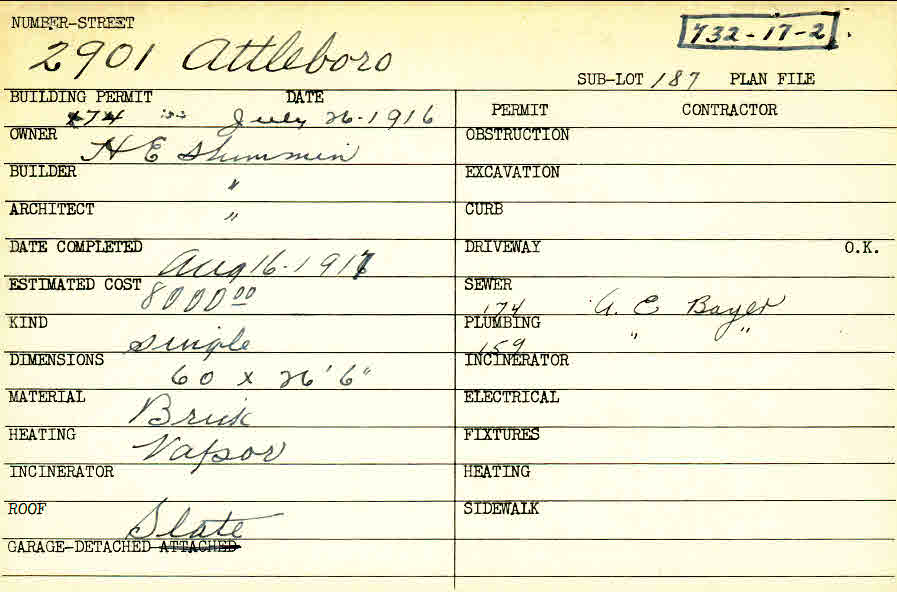 NUMBER-STREET
2901 Attleboro
732-17-2
SUB-LOT 187 PLAN FILE
BUILDING PERMIT DATE
174 July 26-1916
OWNER H E Shimmin
BUILDER "
ARCHITECT "
DATE COMPLETED Aug 16-1917
ESTIMATED COST 8000 00
KIND single
DIMENSIONS 60 x 26'6"
MATERIAL Brick
HEATING Vapor
INCINERATOR
ROOF Slate
GARAGE-DETACHED ATTACHED
PERMIT CONTRACTOR
OBSTRUCTION
EXCAVATION
CURB
DRIVEWAY O.K.
SEWER
174 A. E Bayer
PLUMBING " "
159
INCINERATOR
ELECTRICAL
FIXTURES
HEATING
SIDEWALK